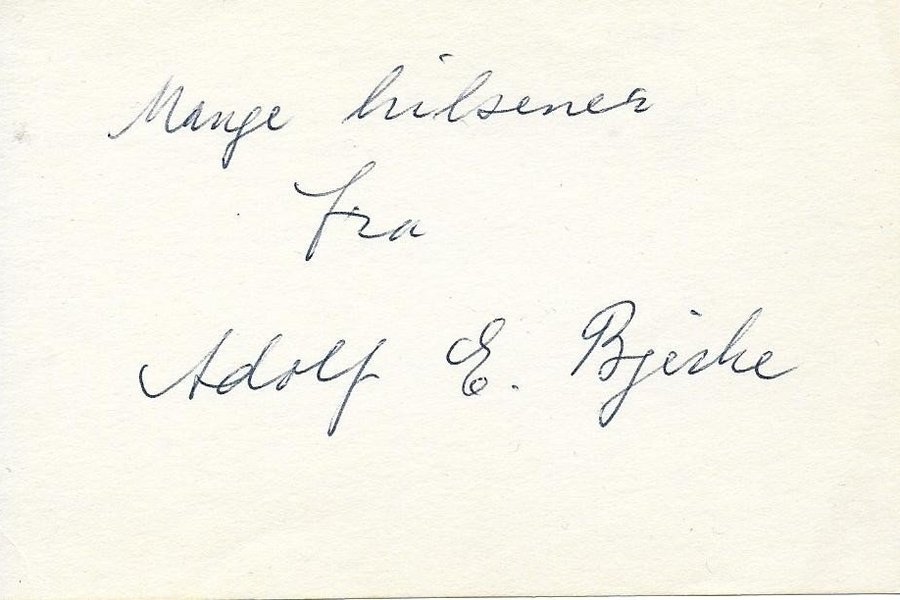 Mange hilsener
fra
Adolf E. Bjerke